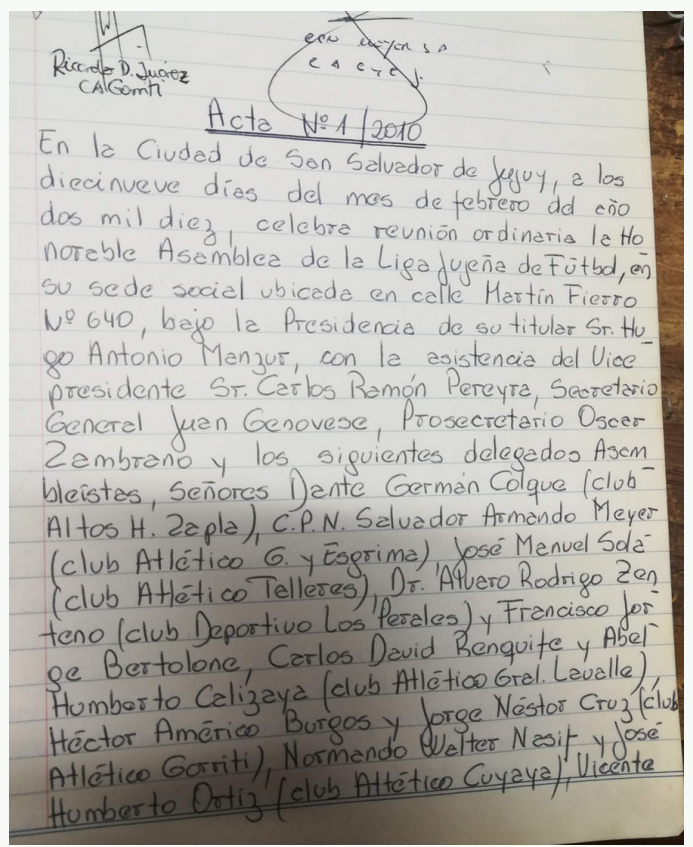 Ricardo D. Juárez
CAGorriti
Acta Nº 1/2010
En la Ciudad de San Salvador de Jujuy, a los
diecinueve días del mes de febrero del año
dos mil diez, celebra reunión ordinaria la Ho
norable Asamblea de la Liga Jujeña de Fútbol, en
su sede social ubicada en calle Martín Fierro
Nº 640, bajo la Presidencia de su titular Sr. Hu_
go Antonio Manzur, con la asistencia del Vice
presidente Sr. Carlos Ramón Pereyra, Secretario
General Juan Genovese, Prosecretario Oscar
Zambrano y los siguientes delegados Asam_
bleístas, Señores Dante Germán Colque (club
Altos H. Zapla), C.P.N. Salvador Armando Meyer
(club Atlético G. y Esgrima), José Manuel Sola_
(club Atlético Talleres), Dr. Alvaro Rodrigo Zen_
teno (club Deportivo Los Perales) y Francisco Jor_
ge Bertolone, Carlos David Benquife y Abel
Humberto Calizaya (club Atlético Gral. Lavalle),
Héctor Américo Burgos y Jorge Néstor Cruz (club
Atlético Gorriti), Normando Walter Nasif y José
Humberto Ortiz (club Atlético Cuyaya), Vicente